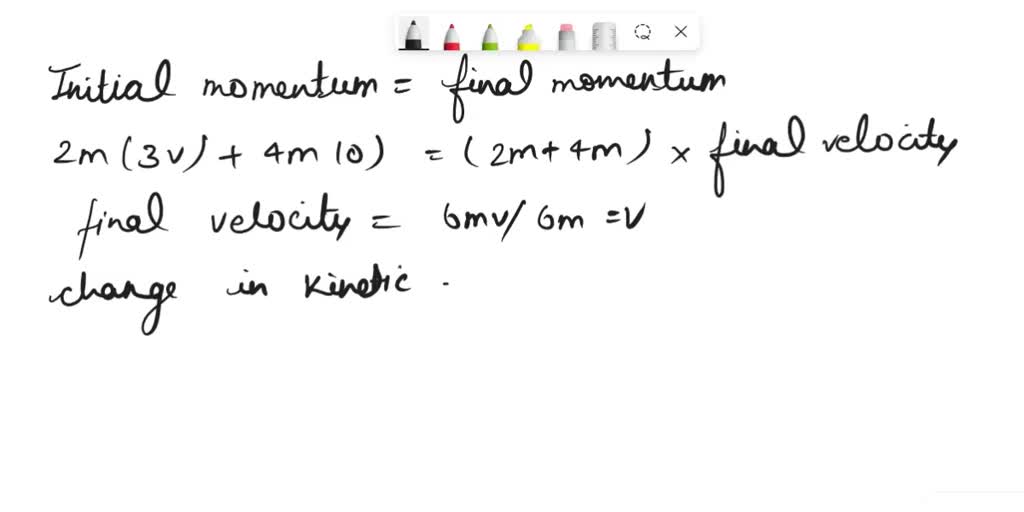 Initial momentum = final momentum
2m (3v) + 4m (0) = (2m + 4m) × final velocity
final velocity = 6mv/ 6m = V
change in kinetic .